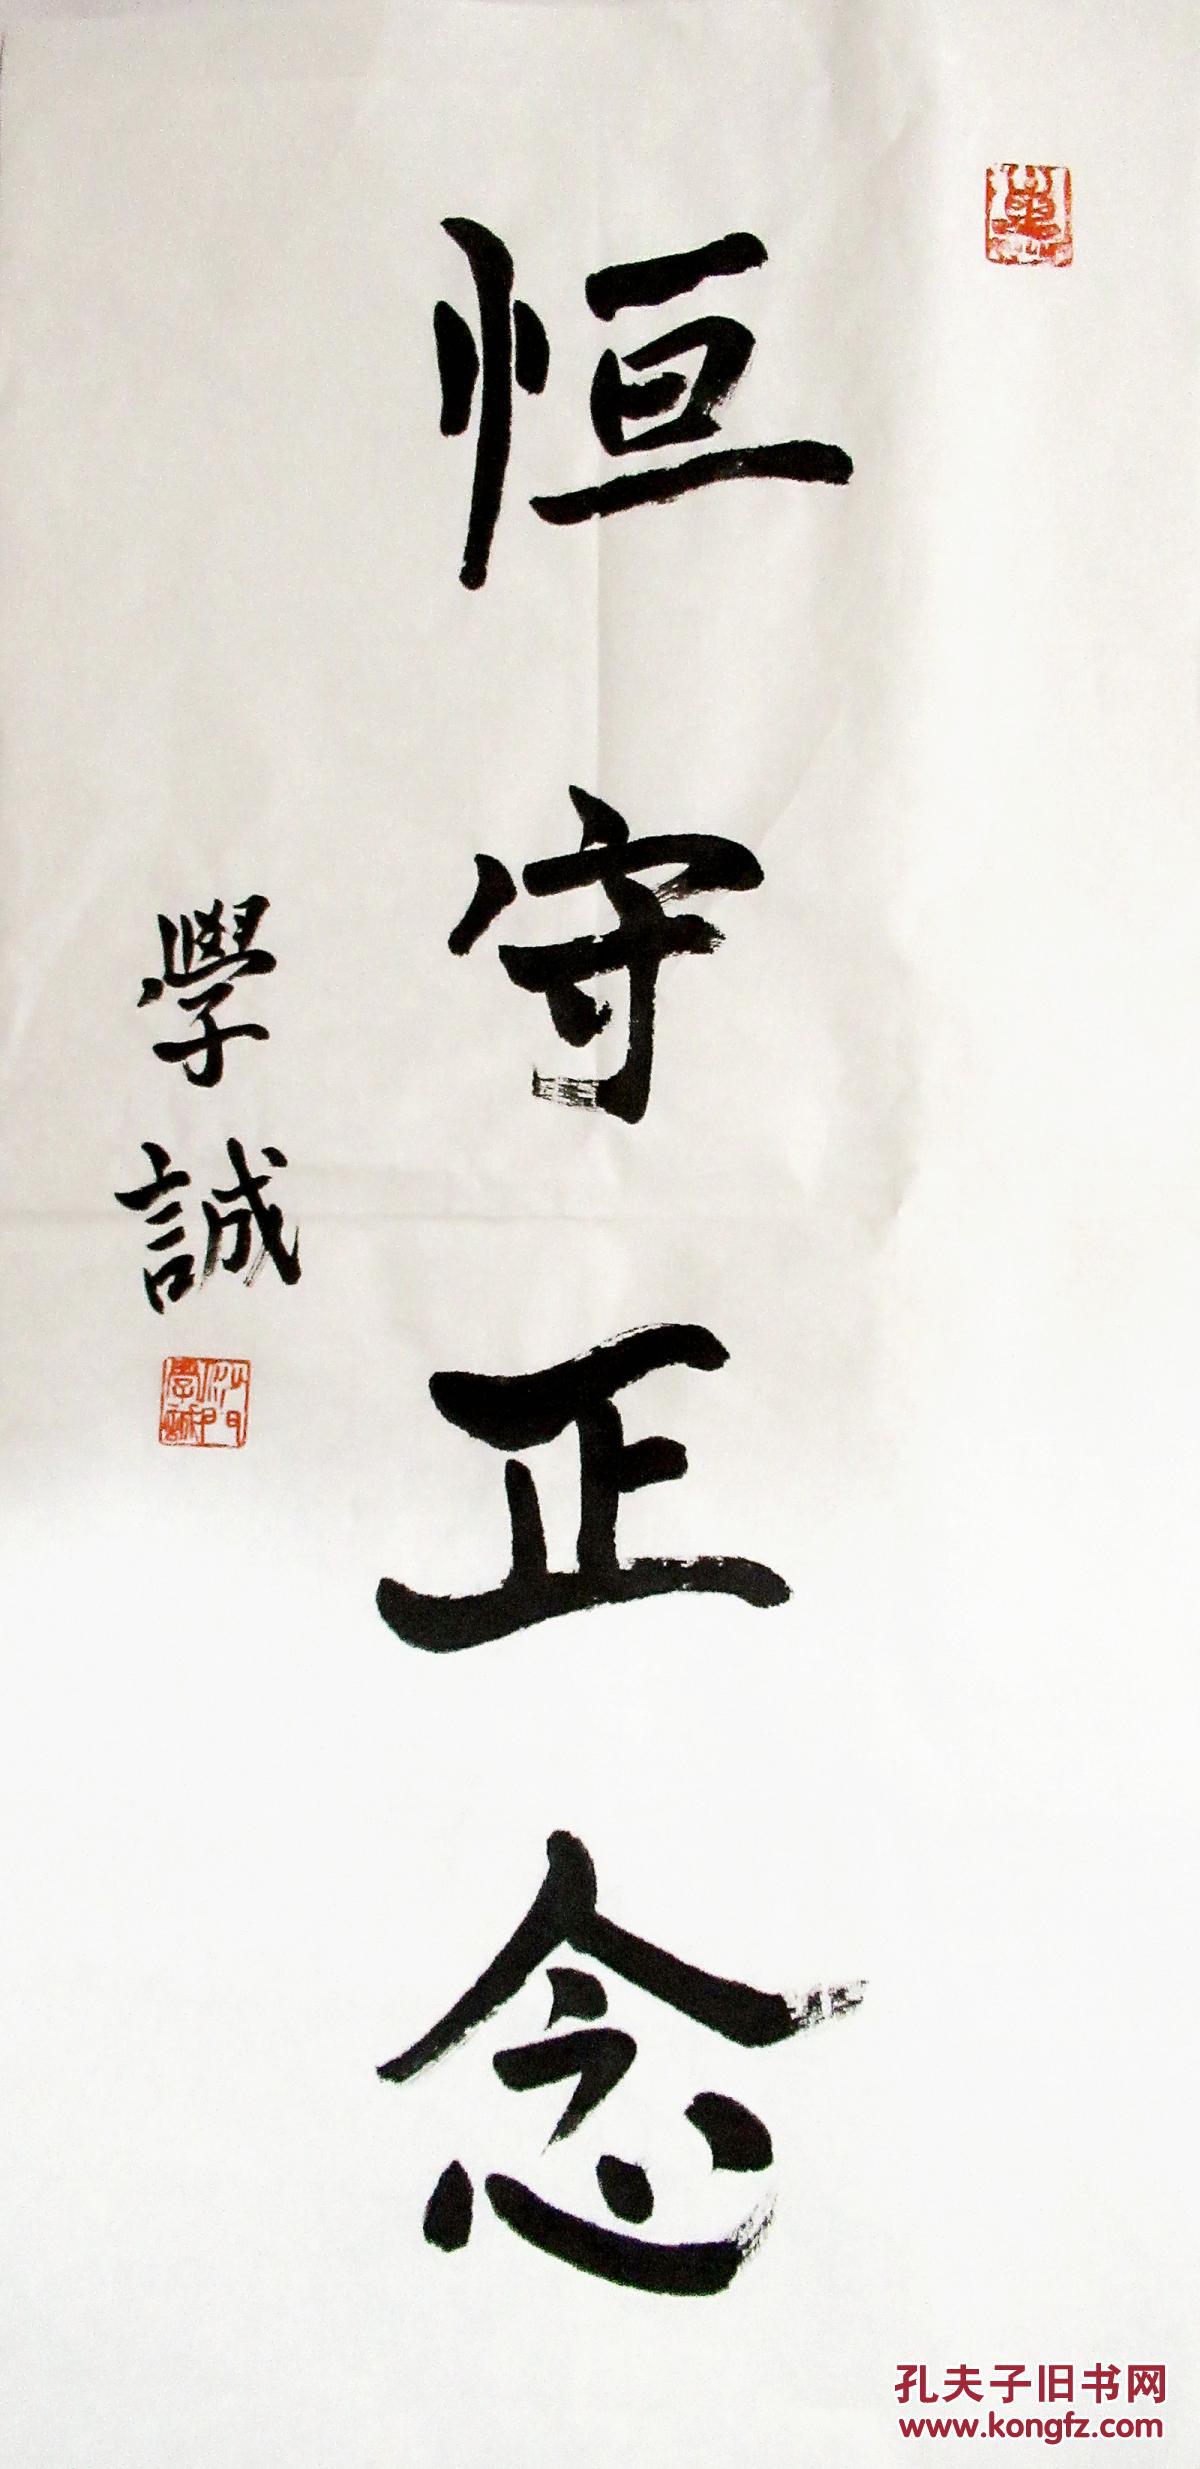 恒守正念
學誠
沙門學誠
孔夫子旧书网
www.kongfz.com